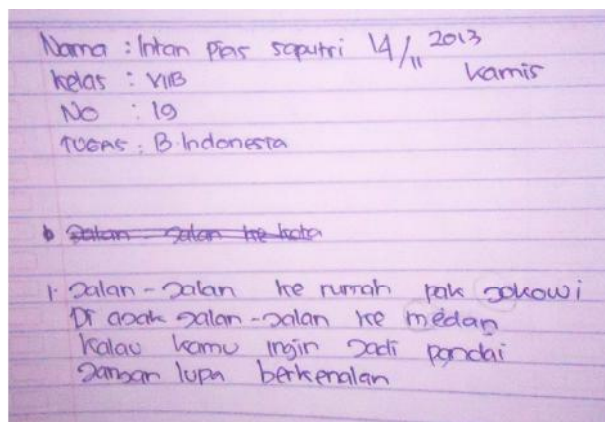 Nama : Intan Pias saputri 14/11 2013
Kelas : VIIB Kamis
No : 19
TUGAS : B. Indonesia
Jalan - Jalan ke kota
1. Jalan - Jalan ke rumah pak Jokowi
Di ajak Jalan - Jalan ke medan
Kalau kamu ingin Jadi pandai
Jangan lupa berkenalan